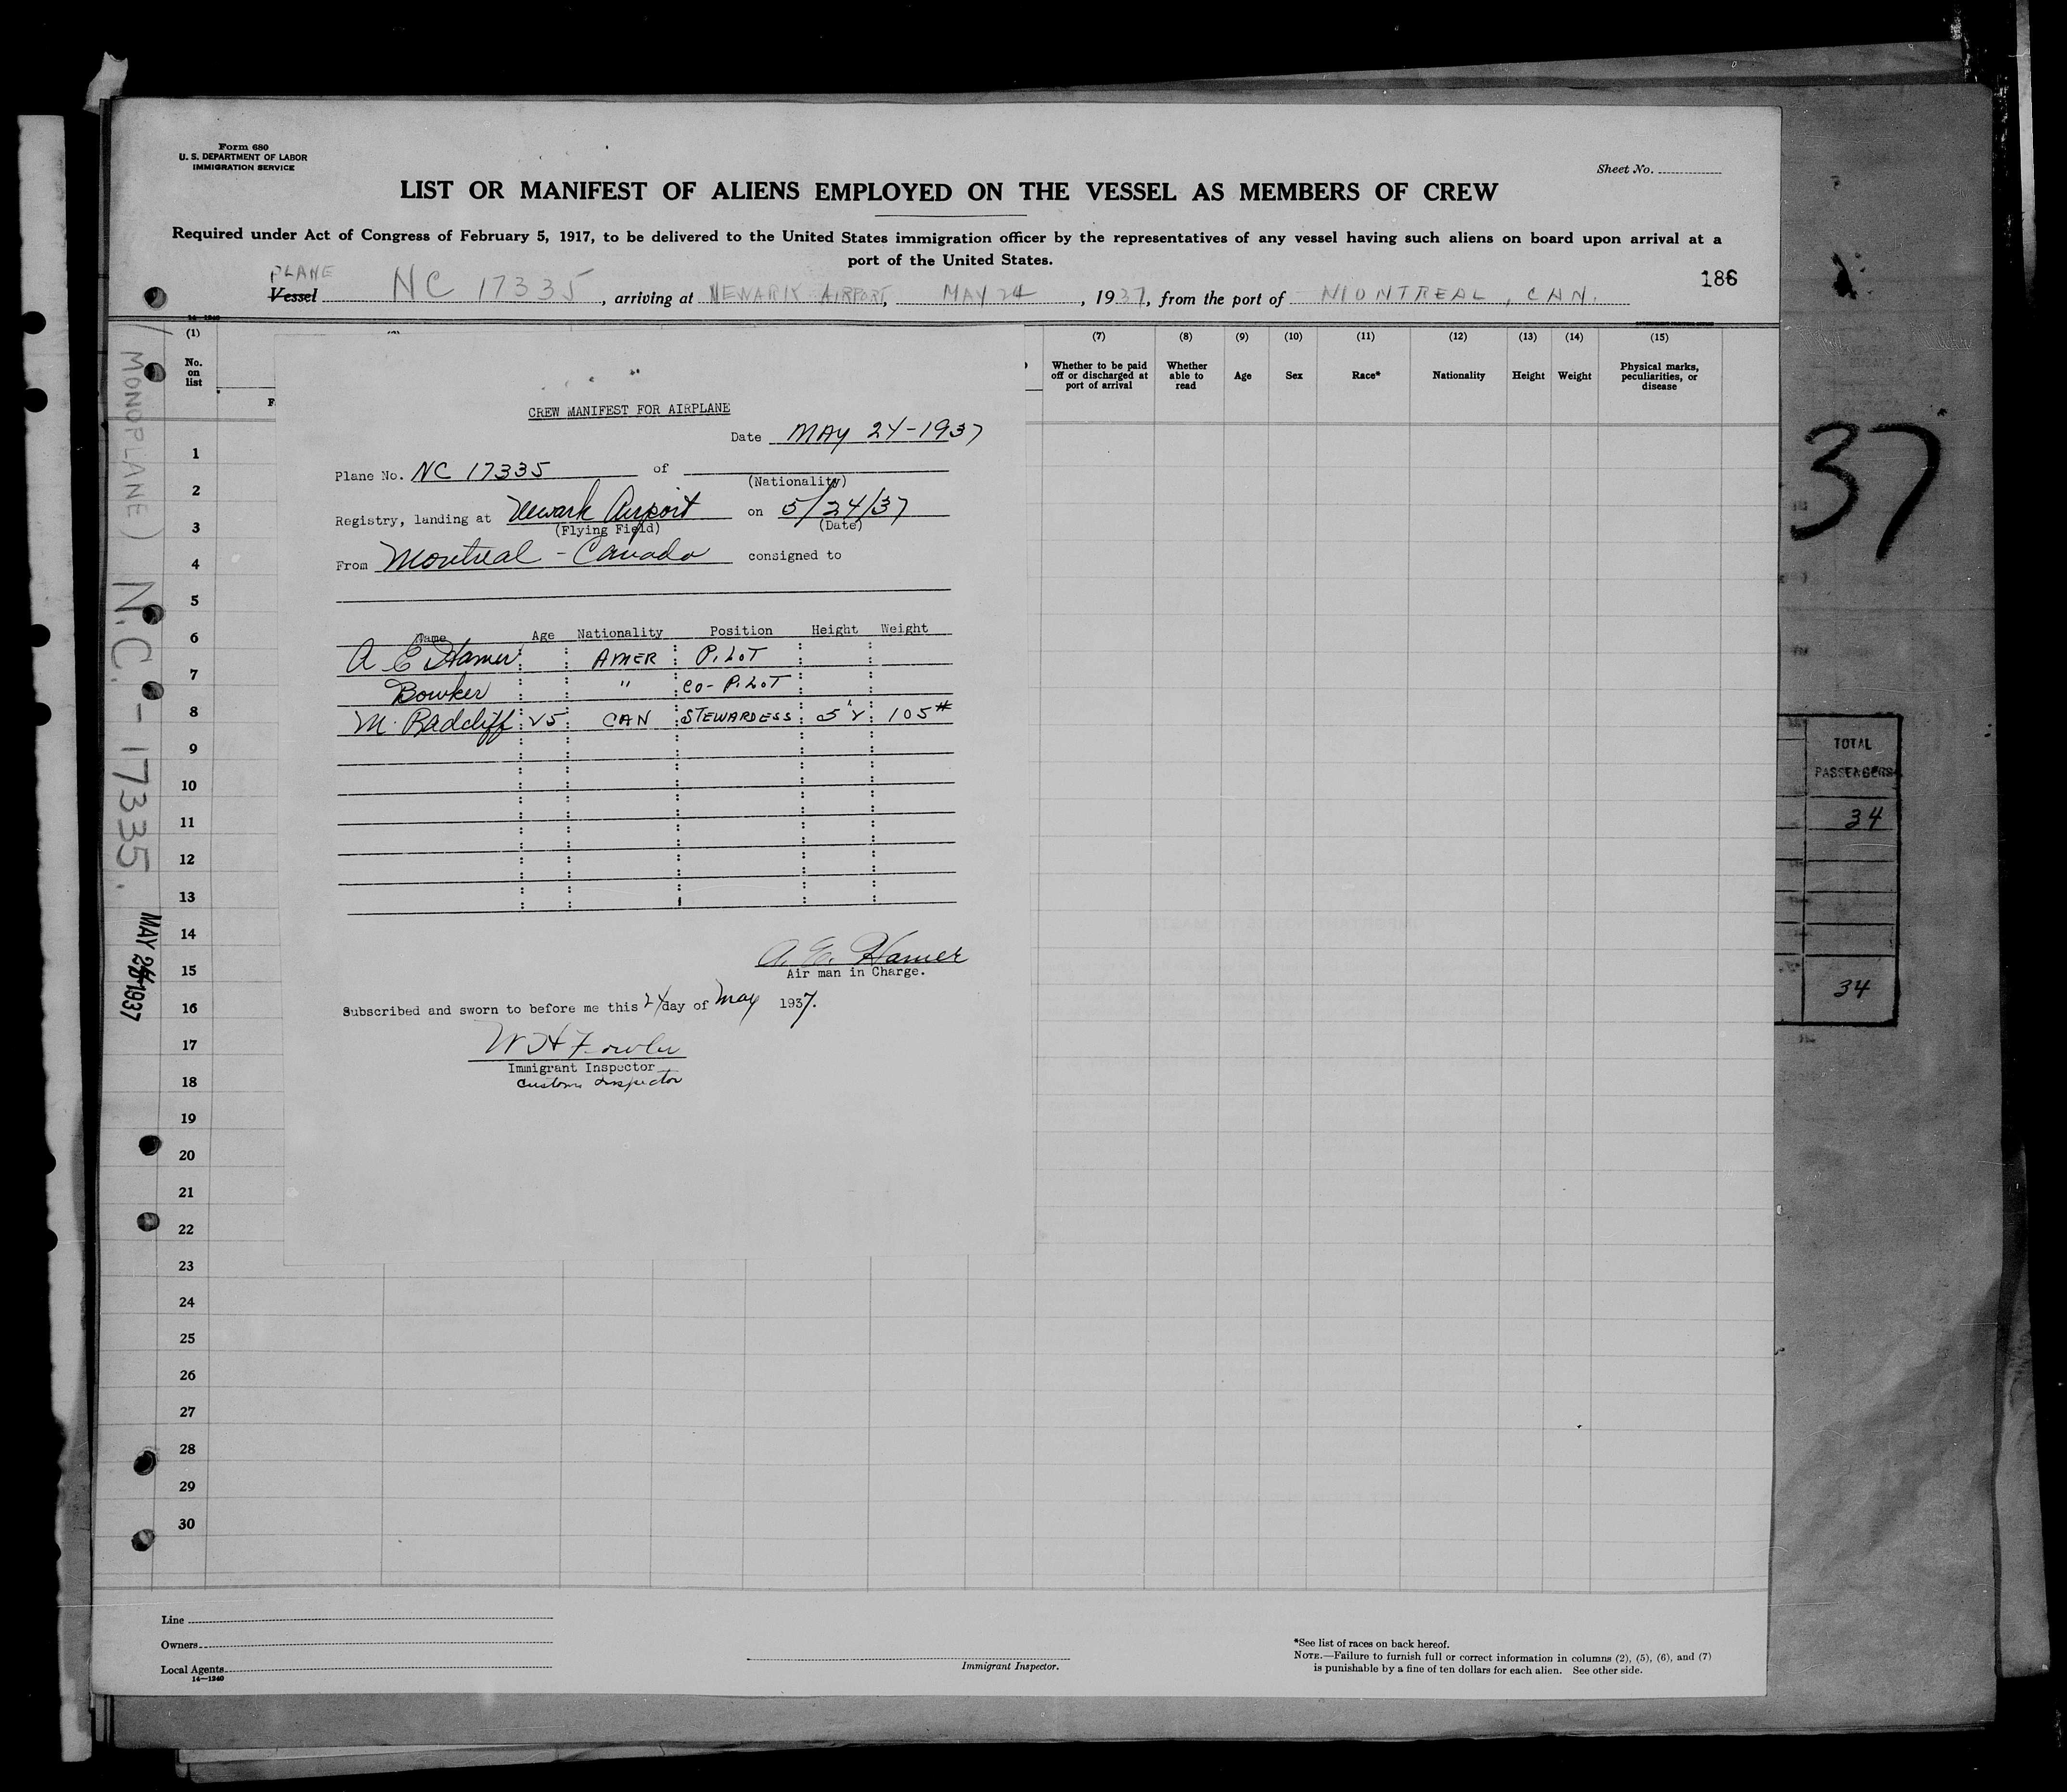 Form 680
U. S. DEPARTMENT OF LABOR
IMMIGRATION SERVICE
Sheet No.
LIST OR MANIFEST OF ALIENS EMPLOYED ON THE VESSEL AS MEMBERS OF CREW
Required under Act of Congress of February 5, 1917, to be delivered to the United States immigration officer by the representatives of any vessel having such aliens on board upon arrival at a
port of the United States.
186
PLANE
Vessel NC 17335, arriving at NEWARK AIRPORT, MAY 24, 1937, from the port of MONTREAL, CAN.
(1) (7) (8) (9) (10) (11) (12) (13) (14) (15)
No. on list
Whether to be paid off or discharged at port of arrival
Whether able to read
Age
Sex
Race*
Nationality
Height
Weight
Physical marks, peculiarities, or disease
CREW MANIFEST FOR AIRPLANE
Date MAY 24-1937
Plane No. NC 17335 of
(Nationality)
Registry, landing at Newark Airport on 5/24/37
(Flying Field) (Date)
From Montreal - Canada consigned to
Name Age Nationality Position Height Weight
A E Hamer AMER PILOT
Bowker " CO-PILOT
M. Radcliff 25 CAN STEWARDESS 5'2 105#
A. E. Hamer
Air man in Charge.
Subscribed and sworn to before me this 24 day of May 1937.
W H Fowler
Immigrant Inspector
Customs Inspector
1
2
3
4
5
6
7
8
9
10
11
12
13
14
15
16
17
18
19
20
21
22
23
24
25
26
27
28
29
30
(MONOPLANE) N.C.-17335.
1937
37
TOTAL
PASSENGERS
34
34
Line
Owners
Local Agents
14—1240
Immigrant Inspector.
*See list of races on back hereof.
NOTE.—Failure to furnish full or correct information in columns (2), (5), (6), and (7)
is punishable by a fine of ten dollars for each alien. See other side.